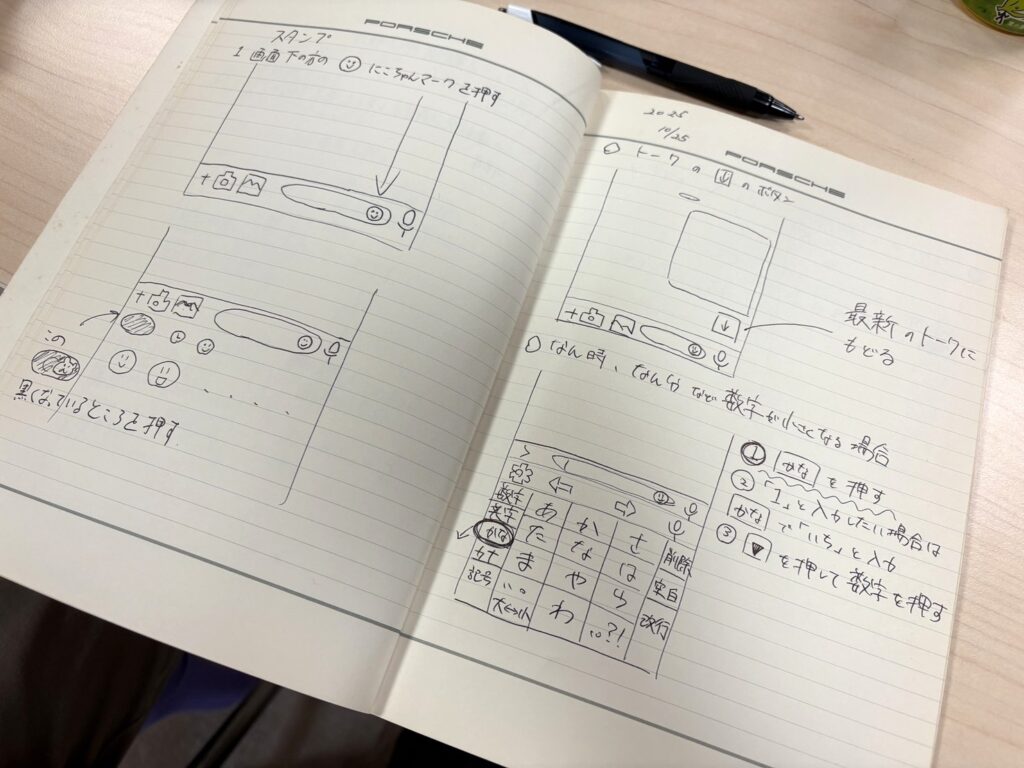 PORSCHE
スタンプ
1 画面下の方の にこちゃんマークを押す
+
+
この
黒くなっているところを押す
2025
10/25
PORSCHE
○ トークの ↓ のボタン
+
↓
最新のトークに
もどる
○ なん時、なん分など数字が小さくなる場合
>
← →
数字
英字
かな
カナ
記号
あ か さ 削除
た な は 空白
ま や ら 改行
大⇔小 わ 、。?!
① かな を押す
② 「1」と入力したい場合は
かな で「いち」と入力
③ ▼ を押して数字を押す